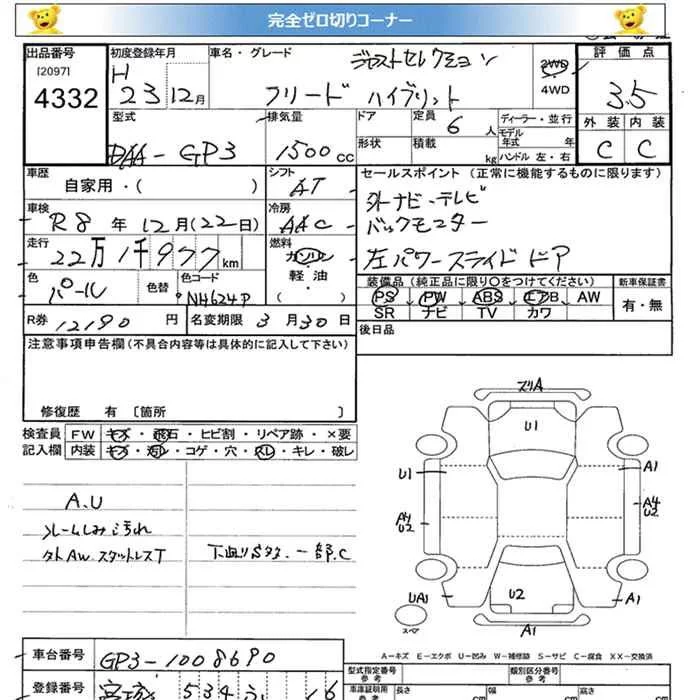 完全ゼロ切りコーナー
出品番号 [2097] 4332
初度登録年月 H 23 12月
車名・グレード ジャストセレクション
フリード ハイブリット
2WD
4WD
評価点 3.5
外装 内装
C C
型式 DAA-GP3
排気量 1500cc
ドア
形状
定員 6 人
積載 kg
ディーラー・並行
モデル年式 年
ハンドル 左・右
車歴 自家用・( )
シフト AT
セールスポイント (正常に機能するものに限ります)
外ナビ・テレビ
バックモニター
左パワースライドドア
車検 R8年12月(22日)
冷房 AAC
走行 22万1千977km
燃料 ガソリン
軽油
・( )
色 パール
色替
色コード NH624P
装備品(純正品に限り○をつけてください)
PS PW ABS エアB AW
SR ナビ TV カワ
新車保証書
有・無
R券 12190円
名変期限 3月30日
後日品
注意事項申告欄(不具合内容等は具体的に記入して下さい)
修復歴 有 〔箇所 〕
検査員記入欄
FW キズ・飛石・ヒビ割・リペア跡・×要
内装 キズ・汚レ・コゲ・穴・スレ・キレ・破レ
A.U
シートしみ汚れ
タトAW スタットレスT
下廻りSタタ.一部.C
ズリA
U1
U1
A1
A4
U2
A4
U2
UA1
U2
A1
A1
スペア
A-キズ E-エクボ U-凹み W-補修跡 S-サビ C-腐食 XX-交換済
車台番号 GP3-1008690
登録番号 宮城 534 16
型式指定番号 参考
類別区分番号 参考
車庫証明用 参考
長さ cm
幅 cm
高さ cm